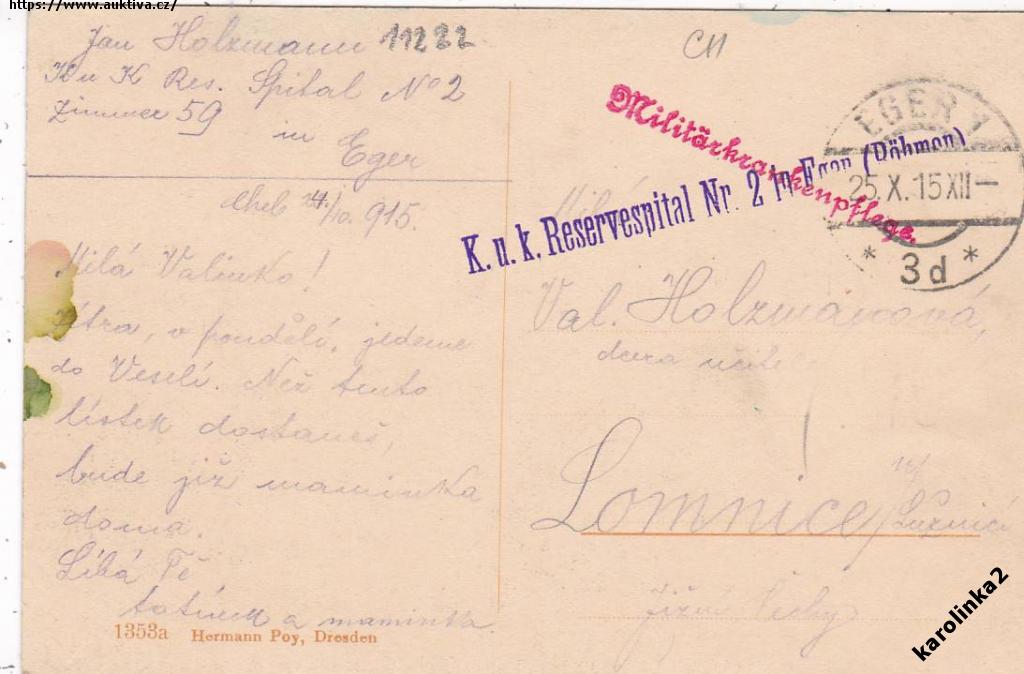 https://www.auktiva.cz/
Jan Holzmann 11222
K u K Res. Spital No 2
Zimmer 59
in
Eger
CH
Militärkrankenpflege.
K. u. k. Reservespital Nr. 2 in Eger (Böhmen)
EGER 1
25.X.15 XII–
* 3d *
Cheb 24./10. 915.
Milá Valinko!
Zítra, v pondělí, jedeme
do Veselí. Než tento
lístek dostaneš,
bude již maminka
doma.
Líbá Tě
tatínek a maminka.
Val. Holzmanová,
dcera učite
Lomnice n/ Lužnicí
Jižní Čechy
1353a Hermann Poy, Dresden
karolinka2